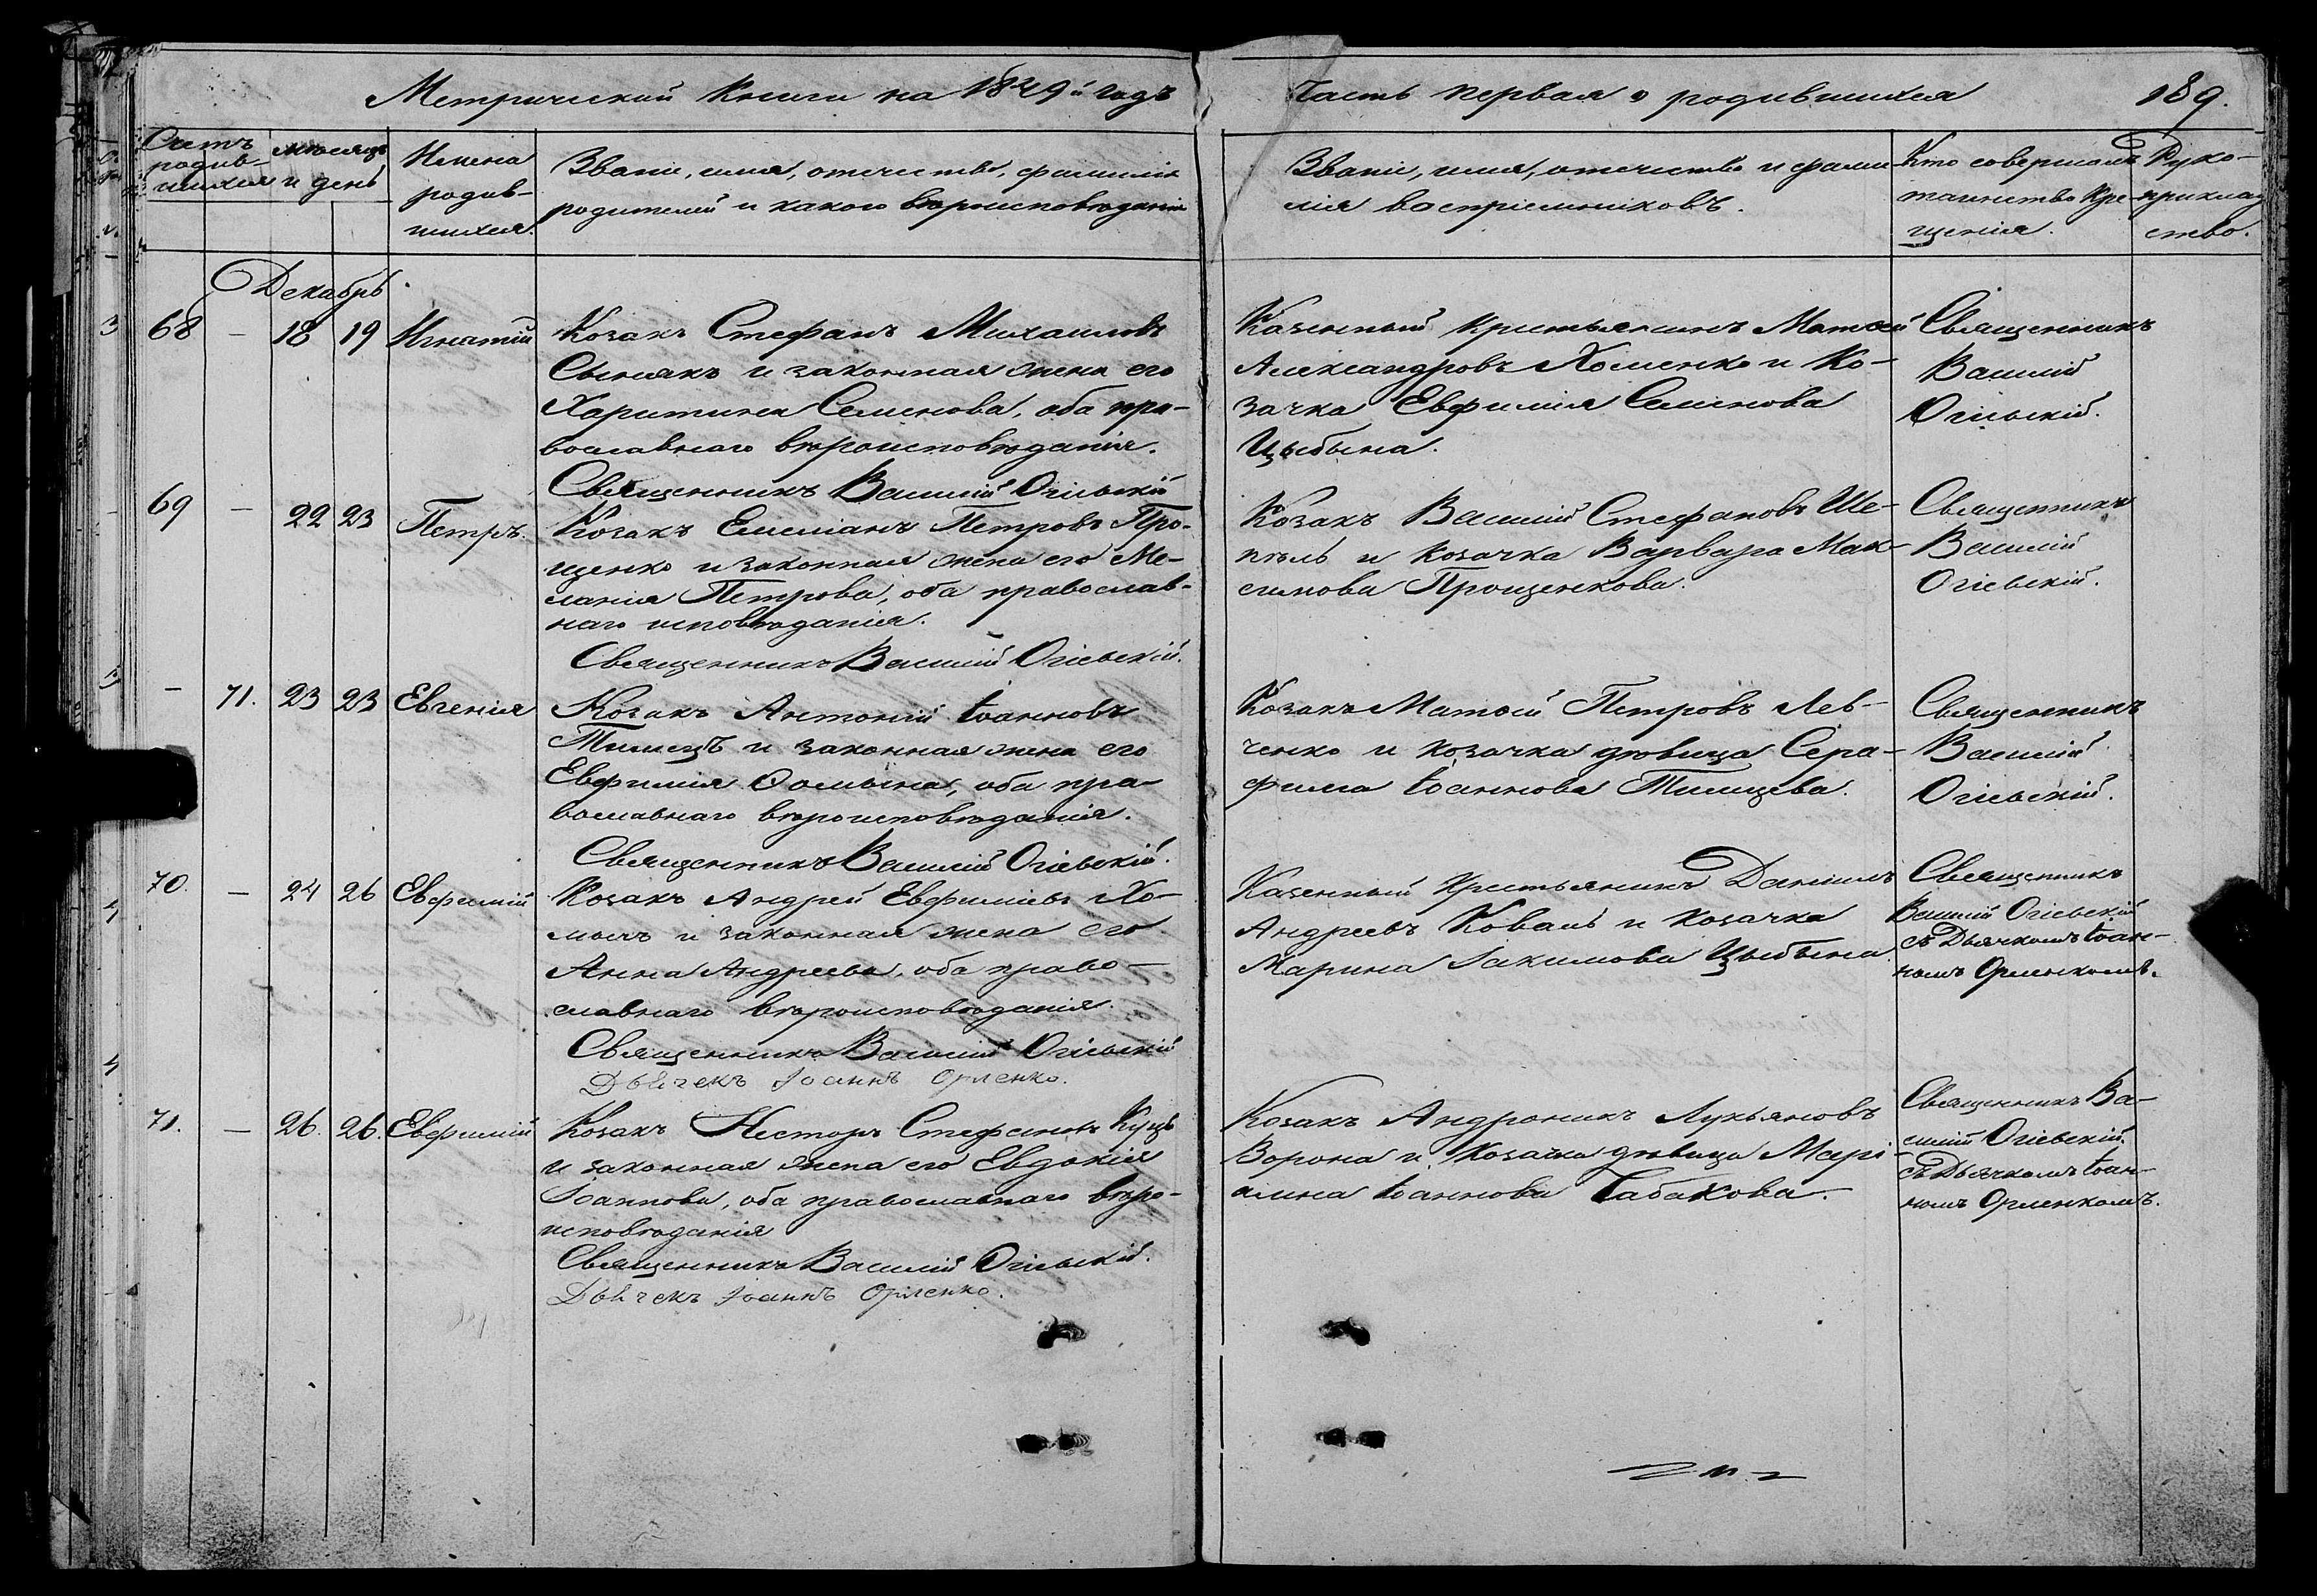 Метрической Книги на 1849й годъ
Часть первая о родившихся
189.
Счетъ родив-
шихся
мѣсяцъ
и день
Имена
родив-
шихся.
Званіе, имя, отечество, фамилія
родителей и какого вѣроисповѣданія
Званіе, имя, отечество и фами
лія воспріемниковъ.
Кто совершалъ
таинство Кре-
щенія.
Руко-
приклад
ство.
Декабрь
68 – 18 19 Игнатій
Козакъ Стефанъ Михаиловъ
и законная жена его
Харитина Семенова, оба пра-
вославнаго вѣроисповѣданія.
Священникъ Василій Огіевскій
Казенный крестьянинъ Матѳей
Александровъ Хоменко и Ко-
зачка Евфимія Семенова
Цыбина.
Священникъ
Василій
Огіевскій.
69 – 22 23 Петръ.
Козакъ Емеліанъ Петровъ Про-
щенко и законная жена его Ме-
ланія Петрова, оба православ-
наго исповѣданія.
Священникъ Василій Огіевскій.
Козакъ Василій Стефановъ Ше-
пѣль и Козачка Варвара Мак-
симова Прощенкова.
Священникъ
Василій
Огіевскій.
– 71. 23 23 Евгенія
Козакъ Антоній Іоанновъ
Тимецъ и законная жена его
Евфимія Ѳомина, оба пра-
вославнаго вѣроисповѣданія.
Священникъ Василій Огіевскій.
Козакъ Матѳей Петровъ Лев-
ченко и козачка дѣвица Сера-
фима Іоаннова Тимцева.
Священникъ
Василій
Огіевскій.
70. – 24 26 Евфимій
Козакъ Андрей Евфиміевъ Хо-
мичъ и законная жена его
Анна Андреева, оба право-
славнаго вѣроисповѣданія.
Священникъ Василій Огіевскій
Дьячекъ Іоаннъ Орленко.
Казенный Крестьянинъ Даніилъ
Андреевъ Коваль и козачка
Марина Іакимова Цыбина
Священникъ
Василій Огіевскій
съ Дьячкомъ Іоан-
номъ Орленкомъ.
71. – 26. 26. Евфимій
Козакъ Несторъ Стефановъ Куцъ
и законная жена его Евдокія
Іоаннова, оба православнаго вѣро-
исповѣданія
Священникъ Василій Огіевскій.
Дьячекъ Іоаннъ Орленко.
Козакъ Андроникъ Лукьяновъ
Ворона и Козачка дѣвица Марі-
амна Іоаннова Табакова.
Священникъ Ва-
силій Огіевскій.
съ Дьячкомъ Іоан-
номъ Орленкомъ.